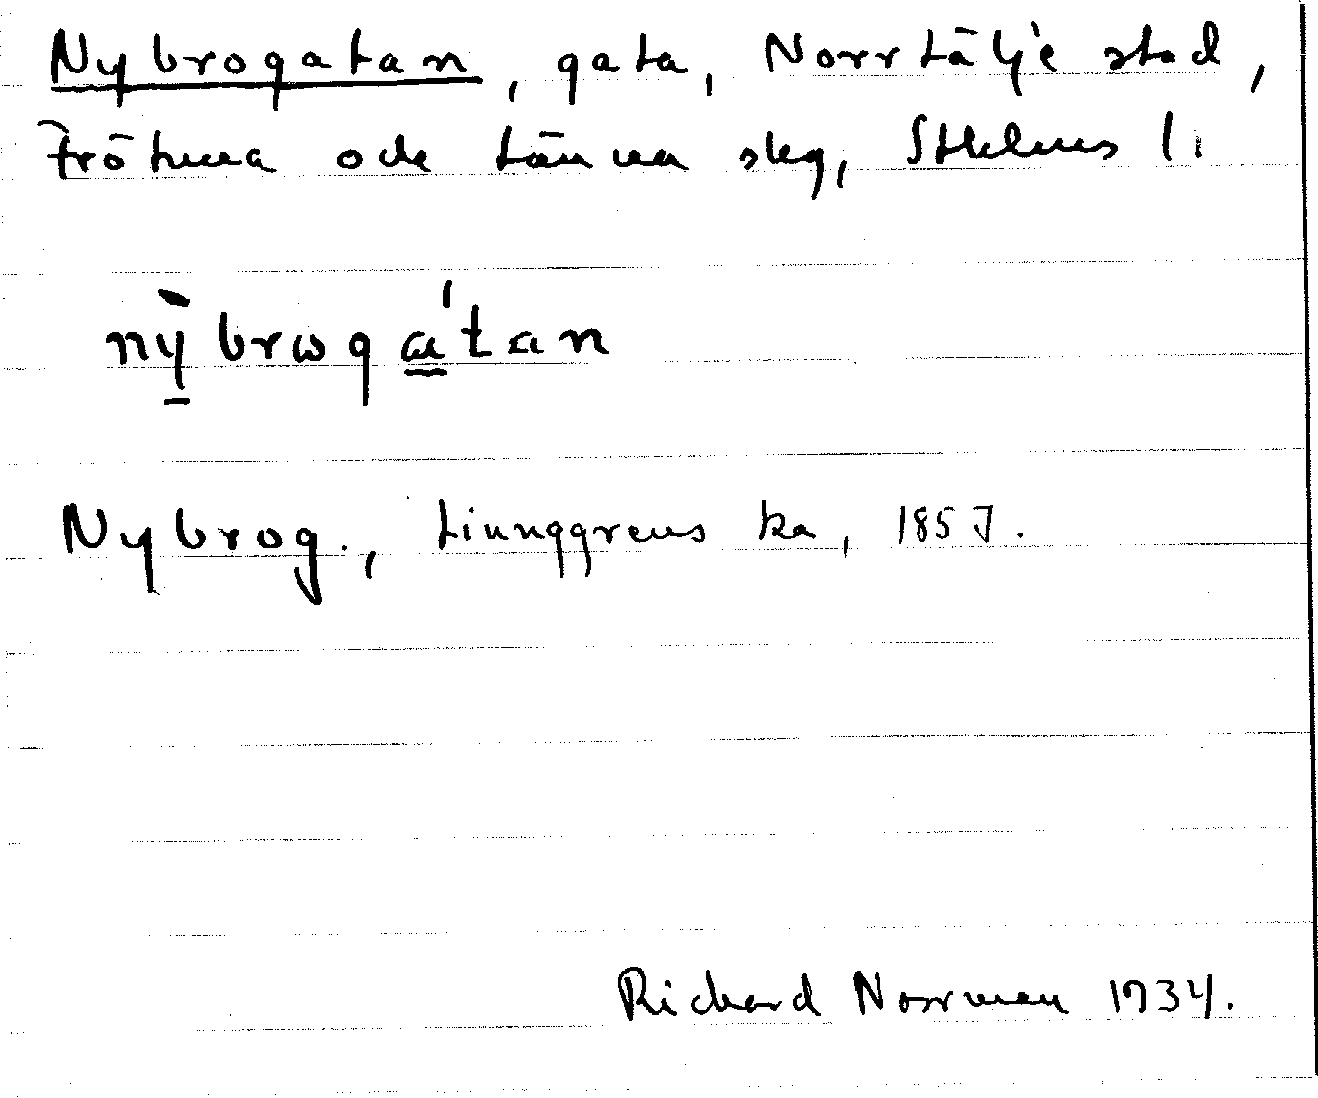 Nybrogatan, gata, Norrtälje stad,
Frötuna och Länna skg, Sthlms l.
nỳbrωgɑ́tan
Nybrog., Linnggrens ka, 1857.
Richard Norrman 1934.